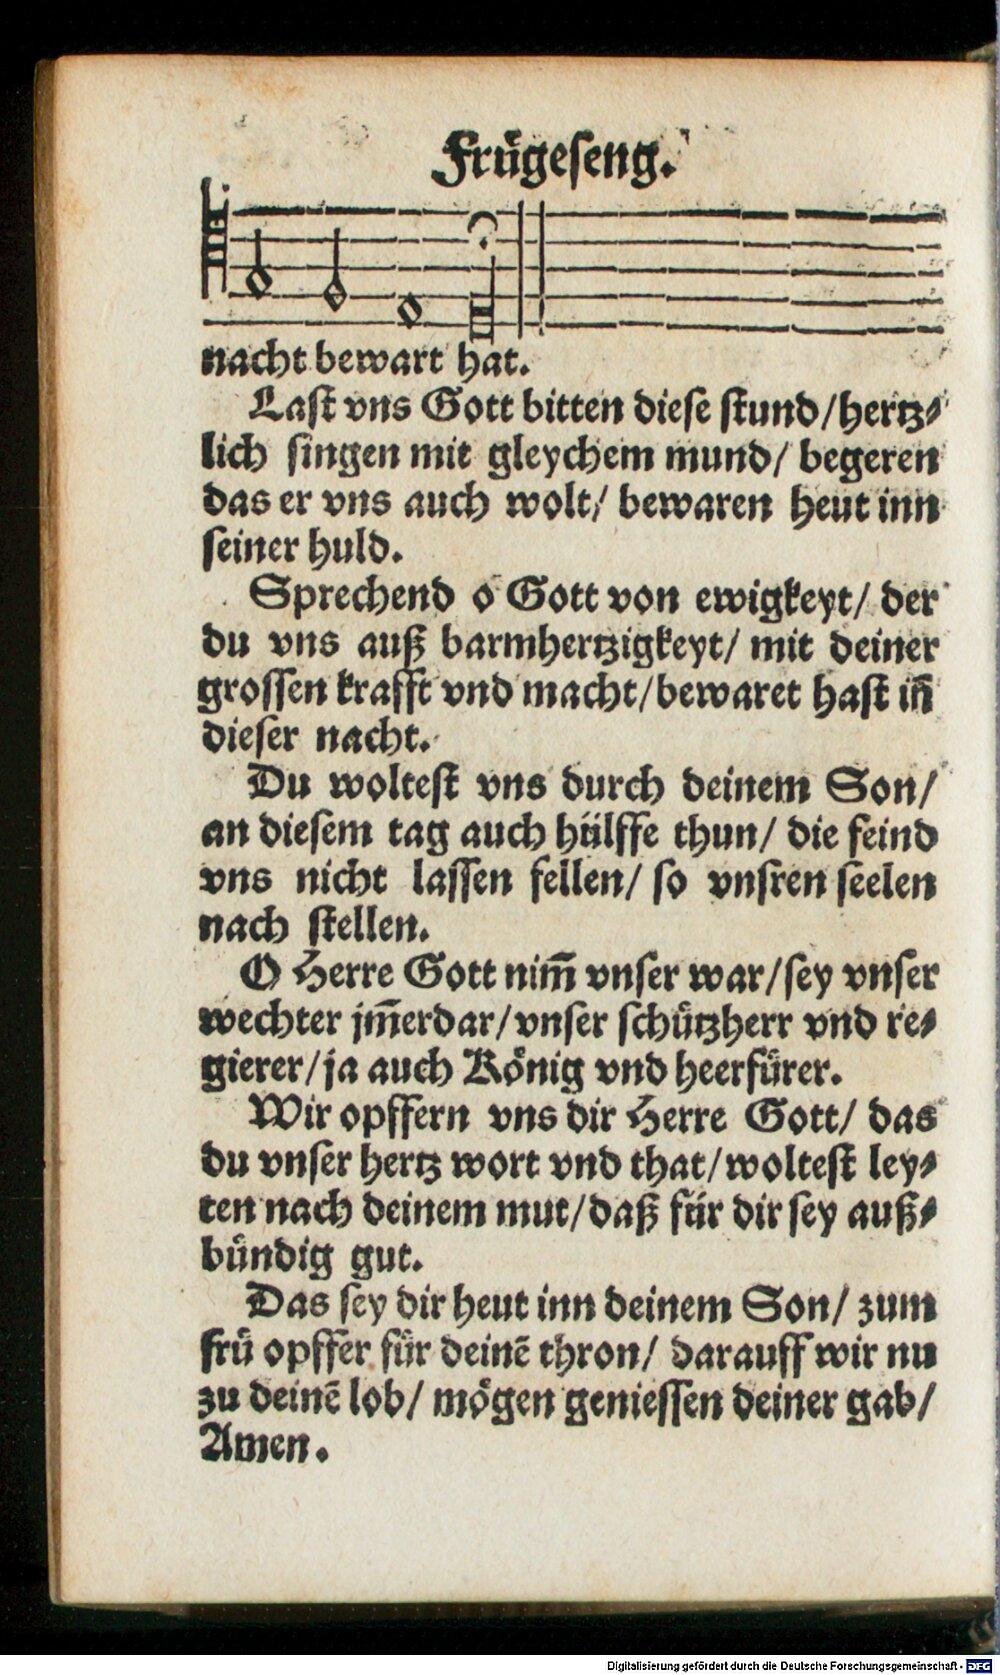 Frügeseng.
nacht bewart hat.
Last vns Gott bitten diese stund/hertz⸗
lich singen mit gleychem mund/ begeren
das er vns auch wolt/ bewaren heut inn
seiner huld.
Sprechend o Gott von ewigkeyt/ der
du vns auß barmhertzigkeyt/ mit deiner
grossen krafft vnd macht/bewaret hast in̄
dieser nacht.
Du woltest vns durch deinem Son/
an diesem tag auch hülffe thun/ die feind
vns nicht lassen fellen/ so vnsren seelen
nach stellen.
O Herre Gott nim̄ vnser war/sey vnser
wechter jm̄erdar/vnser schützherr vnd re⸗
gierer/ja auch König vnd heerfürer.
Wir opffern vns dir Herre Gott/ das
du vnser hertz wort vnd that/woltest ley⸗
ten nach deinem mut/daß für dir sey auß⸗
bündig gut.
Das sey dir heut inn deinem Son/ zum
frü opffer für deinē thron/ darauff wir nu
zu deinē lob/ mögen geniessen deiner gab/
Amen.
Digitalisierung gefördert durch die Deutsche Forschungsgemeinschaft - DFG